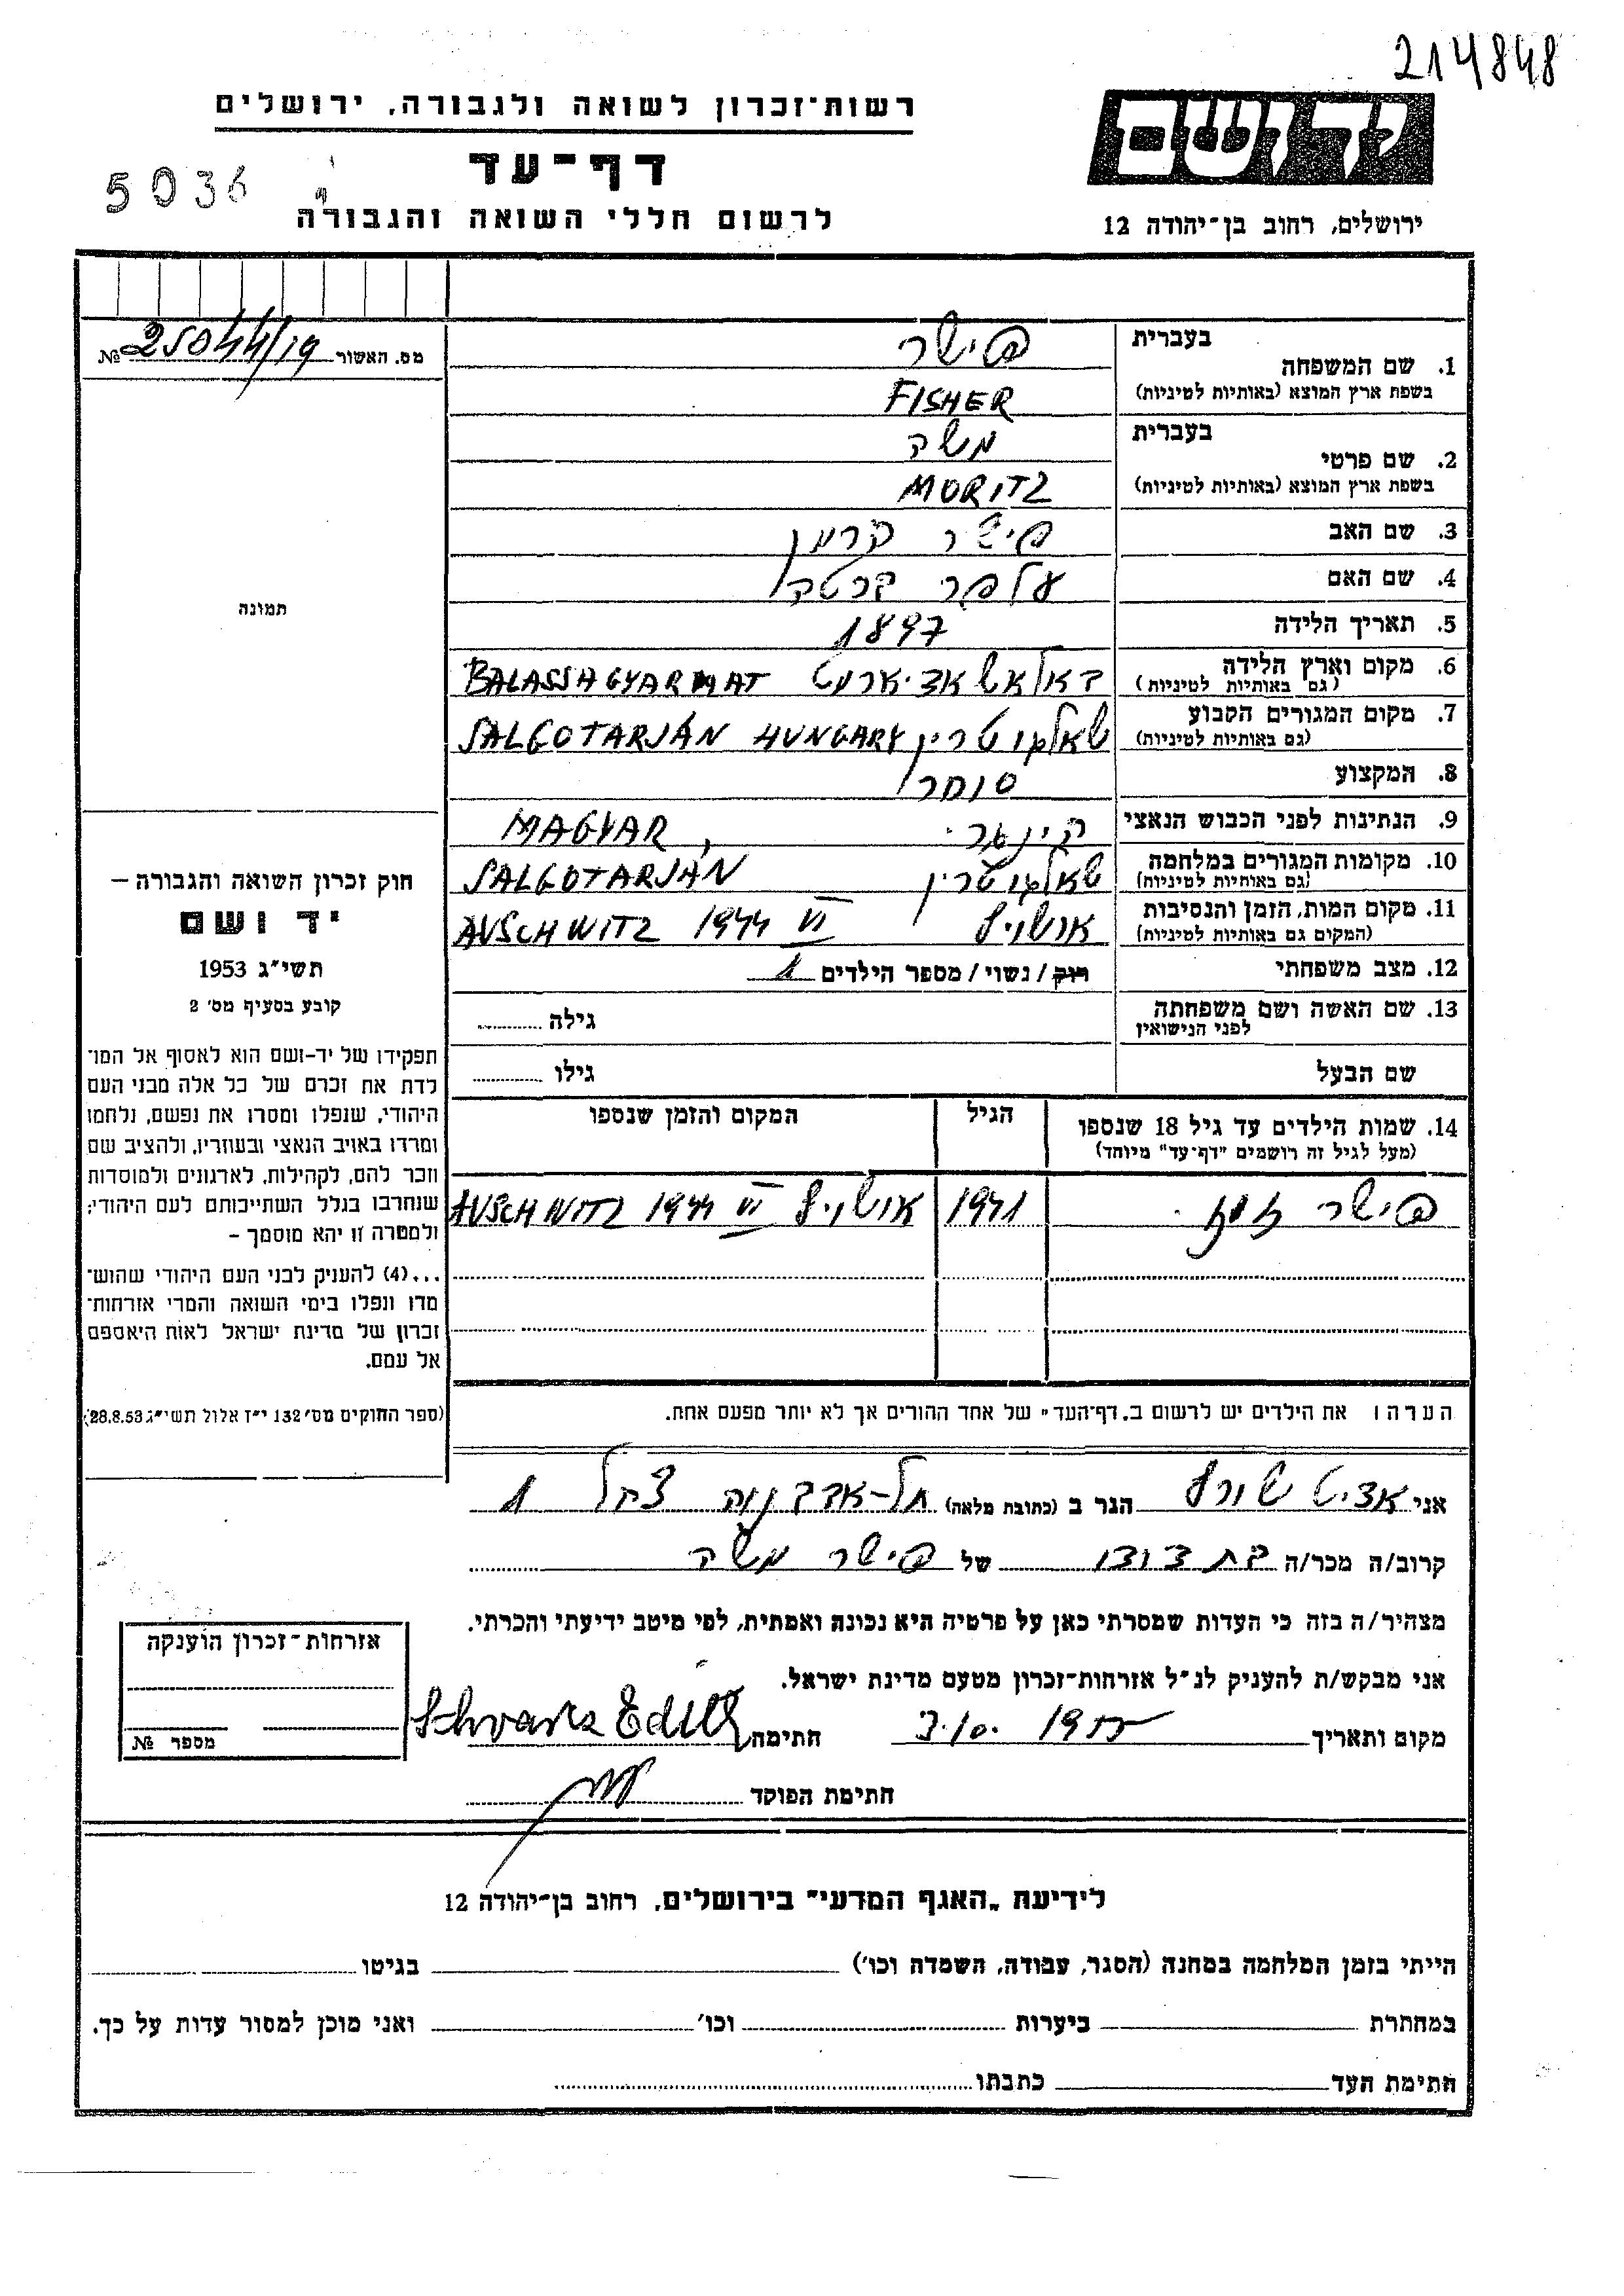 214848
רשות־זכרון לשואה ולגבורה, ירושלים
יד ושם
דף־עד
5036
לרשום חללי השואה והגבורה
ירושלים, רחוב בן־יהודה 12
מס. האשור 25044/19 №
בעברית
1. שם המשפחה
בשפת ארץ המוצא (באותיות לטיניות)
פישר
FISHER
בעברית
2. שם פרטי
בשפת ארץ המוצא (באותיות לטיניות)
משה
MORITZ
3. שם האב פישר
4. שם האם
5. תאריך הלידה 1897
6. מקום וארץ הלידה BALASSAGYARMAT
(גם באותיות לטיניות)
7. מקום המגורים הקבוע שאלגוטריין SALGOTARJÁN HUNGARY
(גם באותיות לטיניות)
8. המקצוע סוחר
9. הנתינות לפני הכבוש הנאצי MAGYAR,
10. מקומות המגורים במלחמה שאלגוטריין SALGOTARJÁN
(גם באותיות לטיניות)
11. מקום המות, הזמן והנסיבות אושויץ AUSCHWITZ 1944 VI
(המקום גם באותיות לטיניות)
12. מצב משפחתי רוק / נשוי / מספר הילדים 1
13. שם האשה ושם משפחתה גילה
לפני הנישואין
שם הבעל גילו
14. שמות הילדים עד גיל 18 שנספו הגיל המקום והזמן שנספו
(מעל לגיל זה רושמים "דף־עד" מיוחד)
פישר 1941 אושויץ AUSCHWITZ 1944 VI
הערה: את הילדים יש לרשום ב„דף־העד" של אחד ההורים אך לא יותר מפעם אחת.
תמונה
חוק זכרון השואה והגבורה —
יד ושם
תשי"ג 1953
קובע בסעיף מס' 2
תפקידו של יד־ושם הוא לאסוף אל המו־
לדת את זכרם של כל אלה מבני העם
היהודי, שנפלו ומסרו את נפשם, נלחמו
ומרדו באויב הנאצי ובעוזריו, ולהציב שם
וזכר להם, לקהילות, לארגונים ולמוסדות
שנחרבו בגלל השתייכותם לעם היהודי;
ולמטרה זו יהא מוסמך –
...(4) להעניק לבני העם היהודי שהוש־
מדו ונפלו בימי השואה והמרי אזרחות־
זכרון של מדינת ישראל לאות היאספם
אל עמם.
(ספר החוקים מס' 132 י"ז אלול תשי"ג 28.8.53)
אני אדיט שורץ הגר ב (כתובת מלאה) תל-אביב 1
קרוב/ה מכר/ה בת דודו של פישר משה
מצהיר/ה בזה כי העדות שמסרתי כאן על פרטיה היא נכונה ואמתית, לפי מיטב ידיעתי והכרתי.
אני מבקש/ת להעניק לנ"ל אזרחות־זכרון מטעם מדינת ישראל.
מקום ותאריך 3.10. חתימה Schvarz Edith
חתימת הפוקד
אזרחות־זכרון הוענקה
מספר №
לידיעת „האגף המדעי" בירושלים, רחוב בן־יהודה 12
הייתי בזמן המלחמה במחנה (הסגר, עבודה, השמדה וכו') בגיטו
במחתרת ביערות וכו' ואני מוכן למסור עדות על כך.
חתימת העד כתבתו